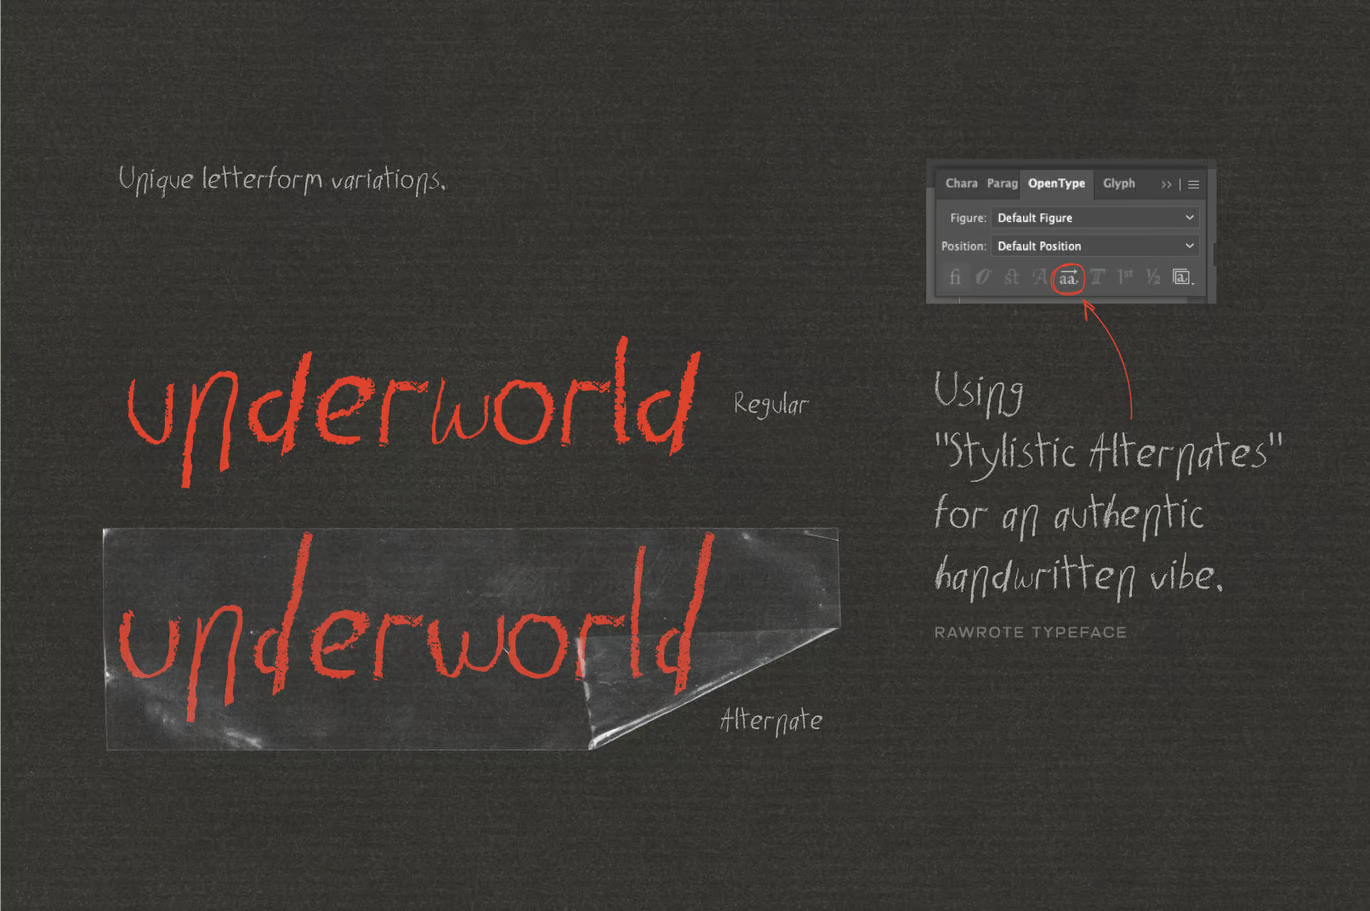 Unique letterform variations.
underworld
Regular
underworld
Alternate
Chara Parag OpenType Glyph
Figure: Default Figure
Position: Default Position
fi O st A aa T 1st ½ a
Using
"Stylistic Alternates"
for an authentic
handwritten vibe.
RAWROTE TYPEFACE